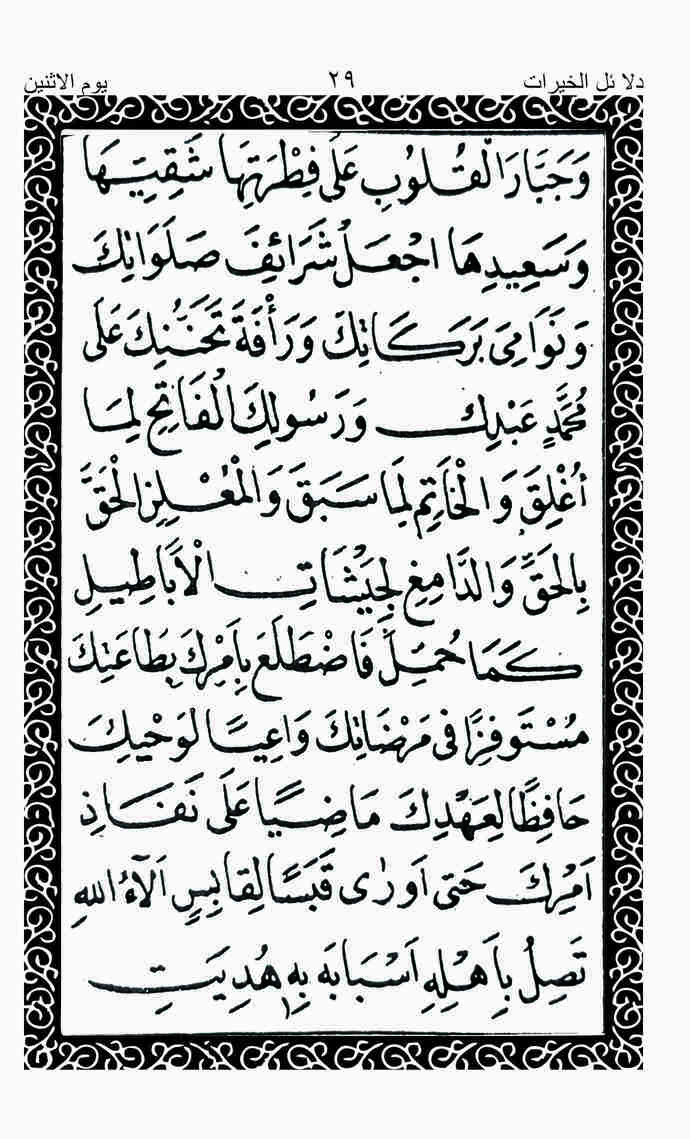 دلائل الخيرات ٢٩ يوم الاثنين
وَجَبَّارَ الْقُلُوبِ عَلَى فِطْرَتِهَا شَقِيِّهَا
وَسَعِيدِهَا اجْعَلْ شَرَائِفَ صَلَوَاتِكَ
وَنَوَامِىَ بَرَكَاتِكَ وَرَأْفَةَ تَحَنُّنِكَ عَلَى
مُحَمَّدٍ عَبْدِكَ وَرَسُولِكَ الْفَاتِحِ لِمَا
أُغْلِقَ وَالْخَاتِمِ لِمَا سَبَقَ وَالْمُعْلِنِ الْحَقَّ
بِالْحَقِّ وَالدَّامِغِ لِجَيْشَاتِ الْأَبَاطِيلِ
كَمَا حُمِّلَ فَاضْطَلَعَ بِأَمْرِكَ بِطَاعَتِكَ
مُسْتَوْفِزًا فِى مَرْضَاتِكَ وَاعِيًا لِوَحْيِكَ
حَافِظًا لِعَهْدِكَ مَاضِيًا عَلَى نَفَاذِ
اَمْرِكَ حَتَى اَوْرٰى قَبَسًا لِقَابِسٍ اَلَآءُ اللهِ
تَصِلُ بِاَهْلِهِ اَسْبَابَهُ بِهِ هُدِيَتِ